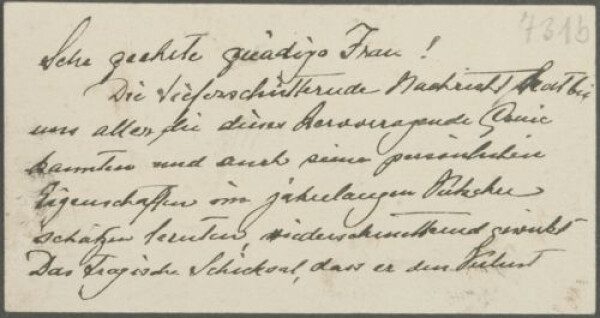 731b
Sehr geehrte gnädige Frau!
Die tieferschütternde Nachricht hat bei
uns allen, die dieses hervorragende Genie
kannten und auch seine persönlichen
Eigenschaften im jahrelangen
schätzen lernten, niederschmetternd gewirkt
Das tragische Schicksal, dass er den Verlust